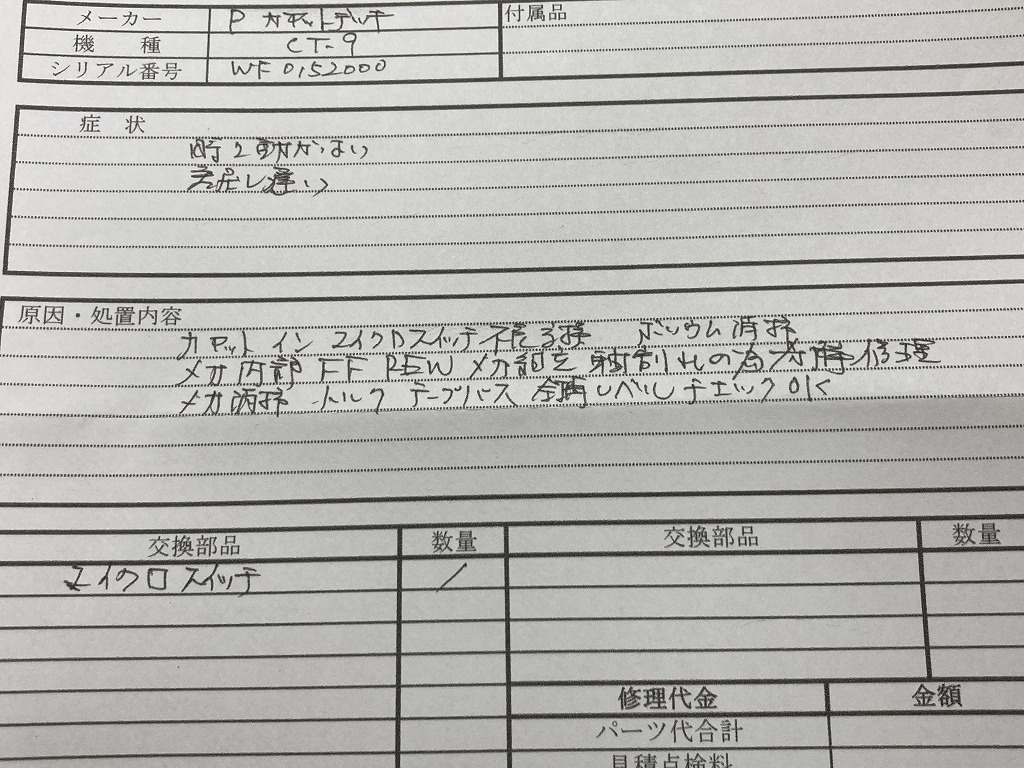 メーカー P カセットデッキ 付属品
機 種 CT-9
シリアル番号 WF0152000
症 状
時々動かない
遅い
原因・処置内容
カセット イン マイクロスイッチ ボリウム清掃
メカ内部 FF REW メカ 割れの為 修理
メカ清掃 トルク テープパス レベル チェック OK
交換部品 数量 交換部品 数量
マイクロスイッチ 1
修理代金 金額
パーツ代合計
見積点検料